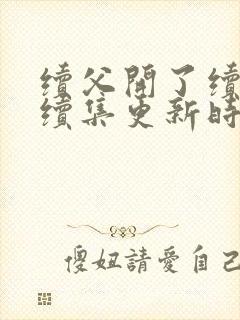 續父開了續
續集更新時
傻妞請愛自己